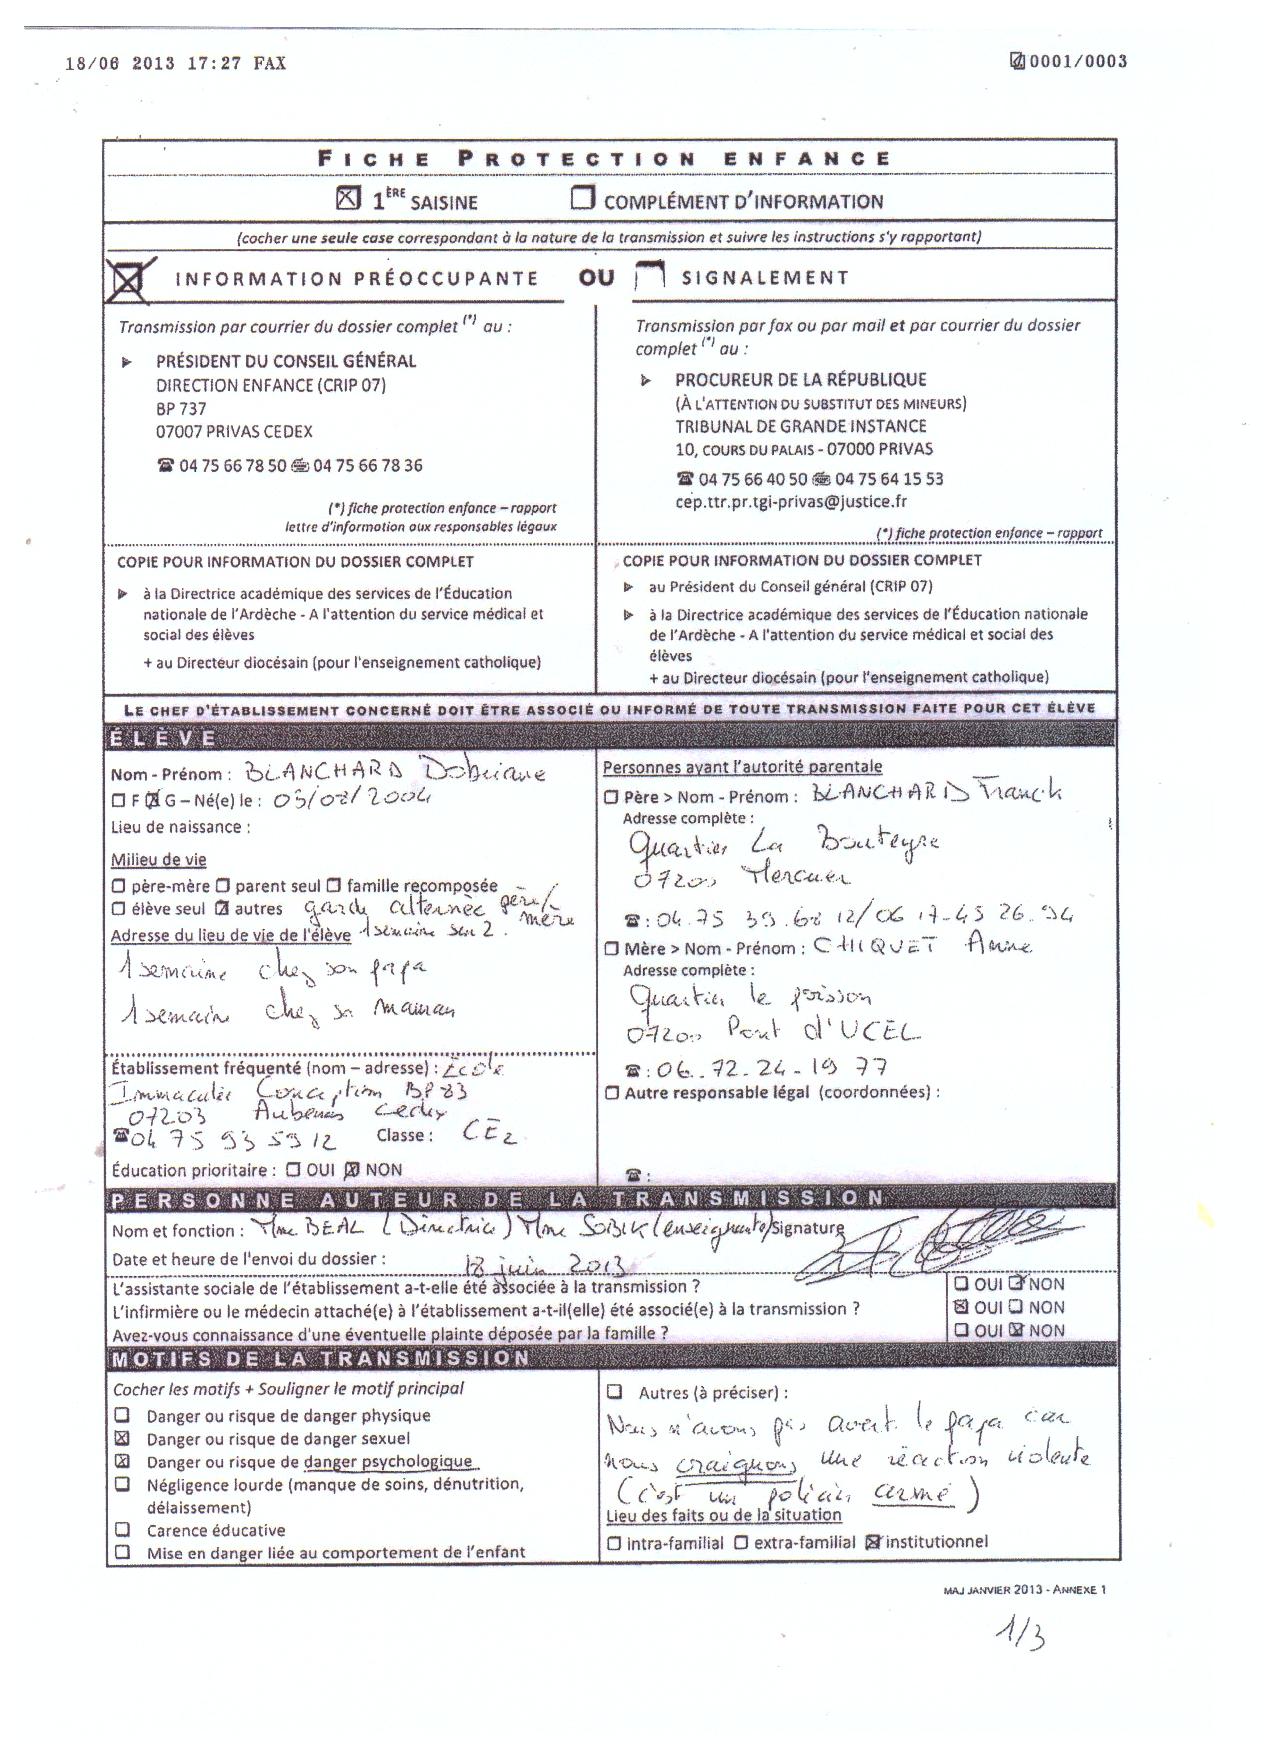 18/06 2013 17:27 FAX
0001/0003
FICHE PROTECTION ENFANCE
☒ 1ÈRE SAISINE ☐ COMPLÉMENT D'INFORMATION
(cocher une seule case correspondant à la nature de la transmission et suivre les instructions s'y rapportant)
☒ INFORMATION PRÉOCCUPANTE OU ☐ SIGNALEMENT
Transmission par courrier du dossier complet (*) au :
PRÉSIDENT DU CONSEIL GÉNÉRAL
DIRECTION ENFANCE (CRIP 07)
BP 737
07007 PRIVAS CEDEX
☎ 04 75 66 78 50 04 75 66 78 36
(*) fiche protection enfance – rapport
lettre d'information aux responsables légaux
Transmission par fax ou par mail et par courrier du dossier
complet (*) au :
PROCUREUR DE LA RÉPUBLIQUE
(À L'ATTENTION DU SUBSTITUT DES MINEURS)
TRIBUNAL DE GRANDE INSTANCE
10, COURS DU PALAIS - 07000 PRIVAS
☎ 04 75 66 40 50 04 75 64 15 53
cep.ttr.pr.tgi-privas@justice.fr
(*) fiche protection enfance – rapport
COPIE POUR INFORMATION DU DOSSIER COMPLET
à la Directrice académique des services de l'Éducation
nationale de l'Ardèche - A l'attention du service médical et
social des élèves
+ au Directeur diocésain (pour l'enseignement catholique)
COPIE POUR INFORMATION DU DOSSIER COMPLET
au Président du Conseil général (CRIP 07)
à la Directrice académique des services de l'Éducation nationale
de l'Ardèche - A l'attention du service médical et social des
élèves
+ au Directeur diocésain (pour l'enseignement catholique)
LE CHEF D'ÉTABLISSEMENT CONCERNÉ DOIT ÊTRE ASSOCIÉ OU INFORMÉ DE TOUTE TRANSMISSION FAITE POUR CET ÉLÈVE
ÉLÈVE
Nom - Prénom : BLANCHARD
☐ F ☒ G – Né(e) le :
Lieu de naissance :
Milieu de vie
☐ père-mère ☐ parent seul ☐ famille recomposée
☐ élève seul ☒ autres garde alternée père/
mère
Adresse du lieu de vie de l'élève 1 semaine sur 2.
1 semaine chez son papa
1 semaine chez sa maman
Établissement fréquenté (nom – adresse) : École
Immaculée Conception BP 83
07203 Aubenas Cedex
☎ 04 75 93 53 12 Classe : CE2
Éducation prioritaire : ☐ OUI ☒ NON
Personnes ayant l'autorité parentale
☐ Père > Nom - Prénom : BLANCHARD Franck
Adresse complète :
Quartier La Bouteyre
07200 Mercuer
☎ : 04.75 39.68 12/06 17.45 26.94
☐ Mère > Nom - Prénom : CHIQUET Anne
Adresse complète :
Quartier le poisson
07200 Pont d'UCEL
☎ : 06.72.24.19 77
☐ Autre responsable légal (coordonnées) :
☎ :
PERSONNE AUTEUR DE LA TRANSMISSION
Nom et fonction : Mme BEAL (Directrice) Mme SOBIK (enseignante) Signature
Date et heure de l'envoi du dossier : 18 juin 2013
L'assistante sociale de l'établissement a-t-elle été associée à la transmission ? ☐ OUI ☒ NON
L'infirmière ou le médecin attaché(e) à l'établissement a-t-il(elle) été associé(e) à la transmission ? ☒ OUI ☐ NON
Avez-vous connaissance d'une éventuelle plainte déposée par la famille ? ☐ OUI ☒ NON
MOTIFS DE LA TRANSMISSION
Cocher les motifs + Souligner le motif principal
☐ Danger ou risque de danger physique
☒ Danger ou risque de danger sexuel
☒ Danger ou risque de danger psychologique
☐ Négligence lourde (manque de soins, dénutrition,
délaissement)
☐ Carence éducative
☐ Mise en danger liée au comportement de l'enfant
☐ Autres (à préciser) :
Nous n'avons pas averti le papa car
nous craignons une réaction violente
(c'est un policier armé)
Lieu des faits ou de la situation
☐ intra-familial ☐ extra-familial ☒ institutionnel
MAJ JANVIER 2013 - ANNEXE 1
1/3